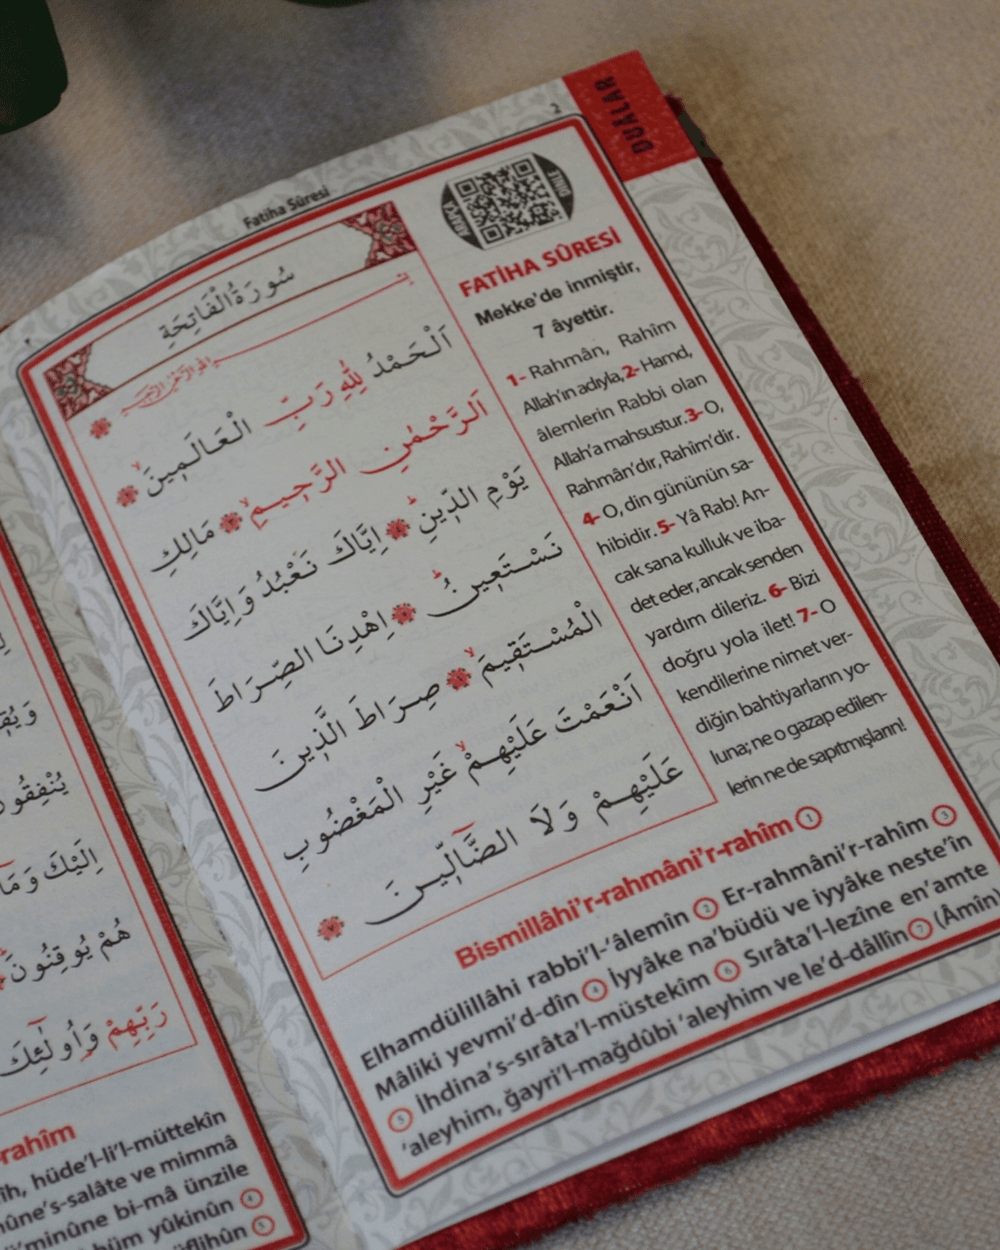 DUÂLAR
2
Fatiha Sûresi
سُورَةُ الْفَاتِحَةِ
اَلْحَمْدُ لِلّٰهِ رَبِّ الْعَالَمٖينَۙ
اَلرَّحْمٰنِ الرَّحٖيمِۙ مَالِكِ
يَوْمِ الدّٖينِؕ اِيَّاكَ نَعْبُدُ وَاِيَّاكَ
نَسْتَعٖينُؕ اِهْدِنَا الصِّرَاطَ
الْمُسْتَقٖيمَۙ صِرَاطَ الَّذٖينَ
اَنْعَمْتَ عَلَيْهِمْۙ غَيْرِ الْمَغْضُوبِ
عَلَيْهِمْ وَلَا الضَّٓالّٖينَ
ARAPÇA
DİNLE
FATİHA SÛRESİ
Mekke'de inmiştir,
7 âyettir.
1- Rahmân, Rahîm
Allah'ın adıyla, 2- Hamd,
âlemlerin Rabbi olan
Allah'a mahsustur. 3- O,
Rahmân'dır, Rahîm'dir.
4- O, din gününün sa-
hibidir. 5- Yâ Rab! An-
cak sana kulluk ve iba-
det eder, ancak senden
yardım dileriz. 6- Bizi
doğru yola ilet! 7- O
kendilerine nimet ver-
diğin bahtiyarların yo-
luna; ne o gazap edilen-
lerin ne de sapıtmışların!
Bismillâhi'r-rahmâni'r-rahîm 1
Elhamdülillâhi rabbi'l-'âlemîn 2 Er-rahmâni'r-rahîm 3
Mâliki yevmi'd-dîn 4 İyyâke na'büdü ve iyyâke neste'în
5 İhdina's-sırâta'l-müstekîm 6 Sırâta'l-lezîne en'amte
'aleyhim, ğayri'l-mağdûbi 'aleyhim ve le'd-dâllîn 7 (Âmîn)
وَيُقٖ
يُنْفِقُونَ
اِلَيْكَ وَمَٓا
هُمْ يُوقِنُونَؕ
رَبِّهِمْ وَاُولٰٓئِكَ
-rahîm
îh, hüde'l-li'l-müttekîn
nûne's-salâte ve mimmâ
'minûne bi-mâ ünzile
hüm yûkinûn 4
üflihûn 5